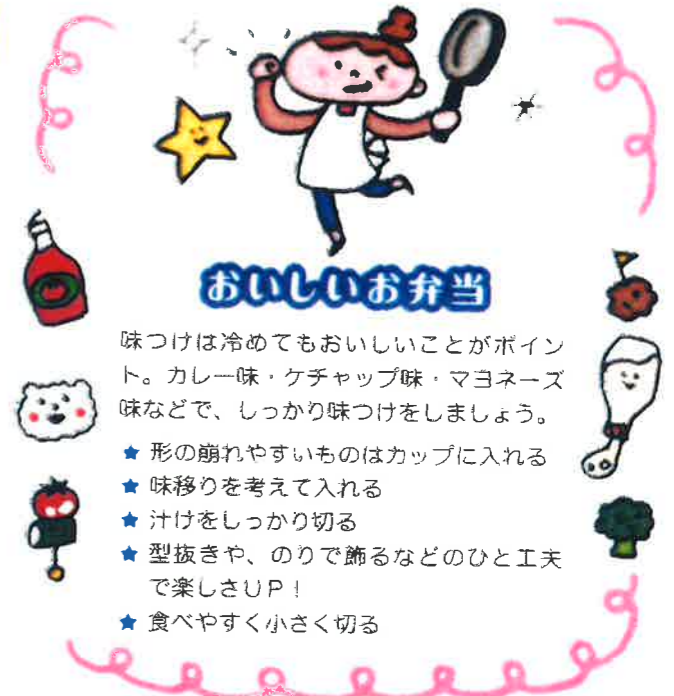 おいしいお弁当
味つけは冷めてもおいしいことがポイン
ト。カレー味・ケチャップ味・マヨネーズ
味などで、しっかり味つけをしましょう。
★ 形の崩れやすいものはカップに入れる
★ 味移りを考えて入れる
★ 汁けをしっかり切る
★ 型抜きや、のりで飾るなどのひと工夫
で楽しさUP!
★ 食べやすく小さく切る